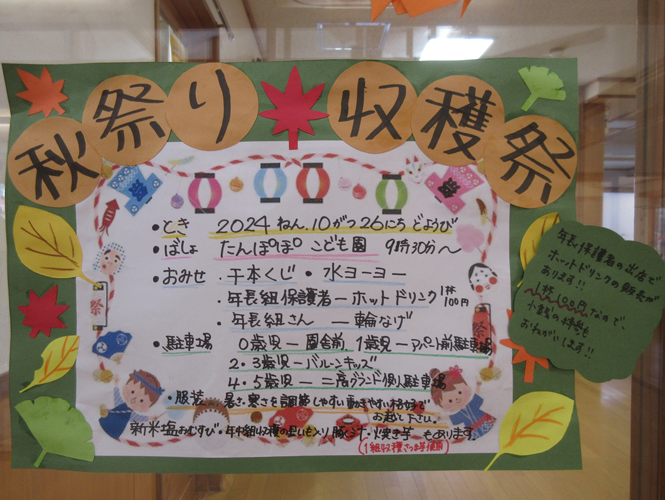 秋祭り収穫祭
・とき 2024ねん.10がつ26にち どようび
・ばしょ たんぽぽ こども園 9時30分〜
・おみせ 千本くじ・水ヨーヨー
・年長組保護者ーホットドリンク1杯100円
・年長組さん ー輪なげ
・駐車場 0歳児ー園舎前、1歳児ーアパート前駐車場
2・3歳児ーバルーンキッズ
4・5歳児ー二店グランド側駐車場
・服装 暑さ.寒さを調節しやすい動きやすいお子で
お越し下さい。
新米塩おむすび・年中組収穫の里いも入り豚汁・焼き芋ーもあります。
(1組収穫さつま芋使用)
祭
祭
年長保護者の出店で
ホットドリンクの販売が
あります!!
1杯100円なので、
小銭の持参も
おねがいします!!